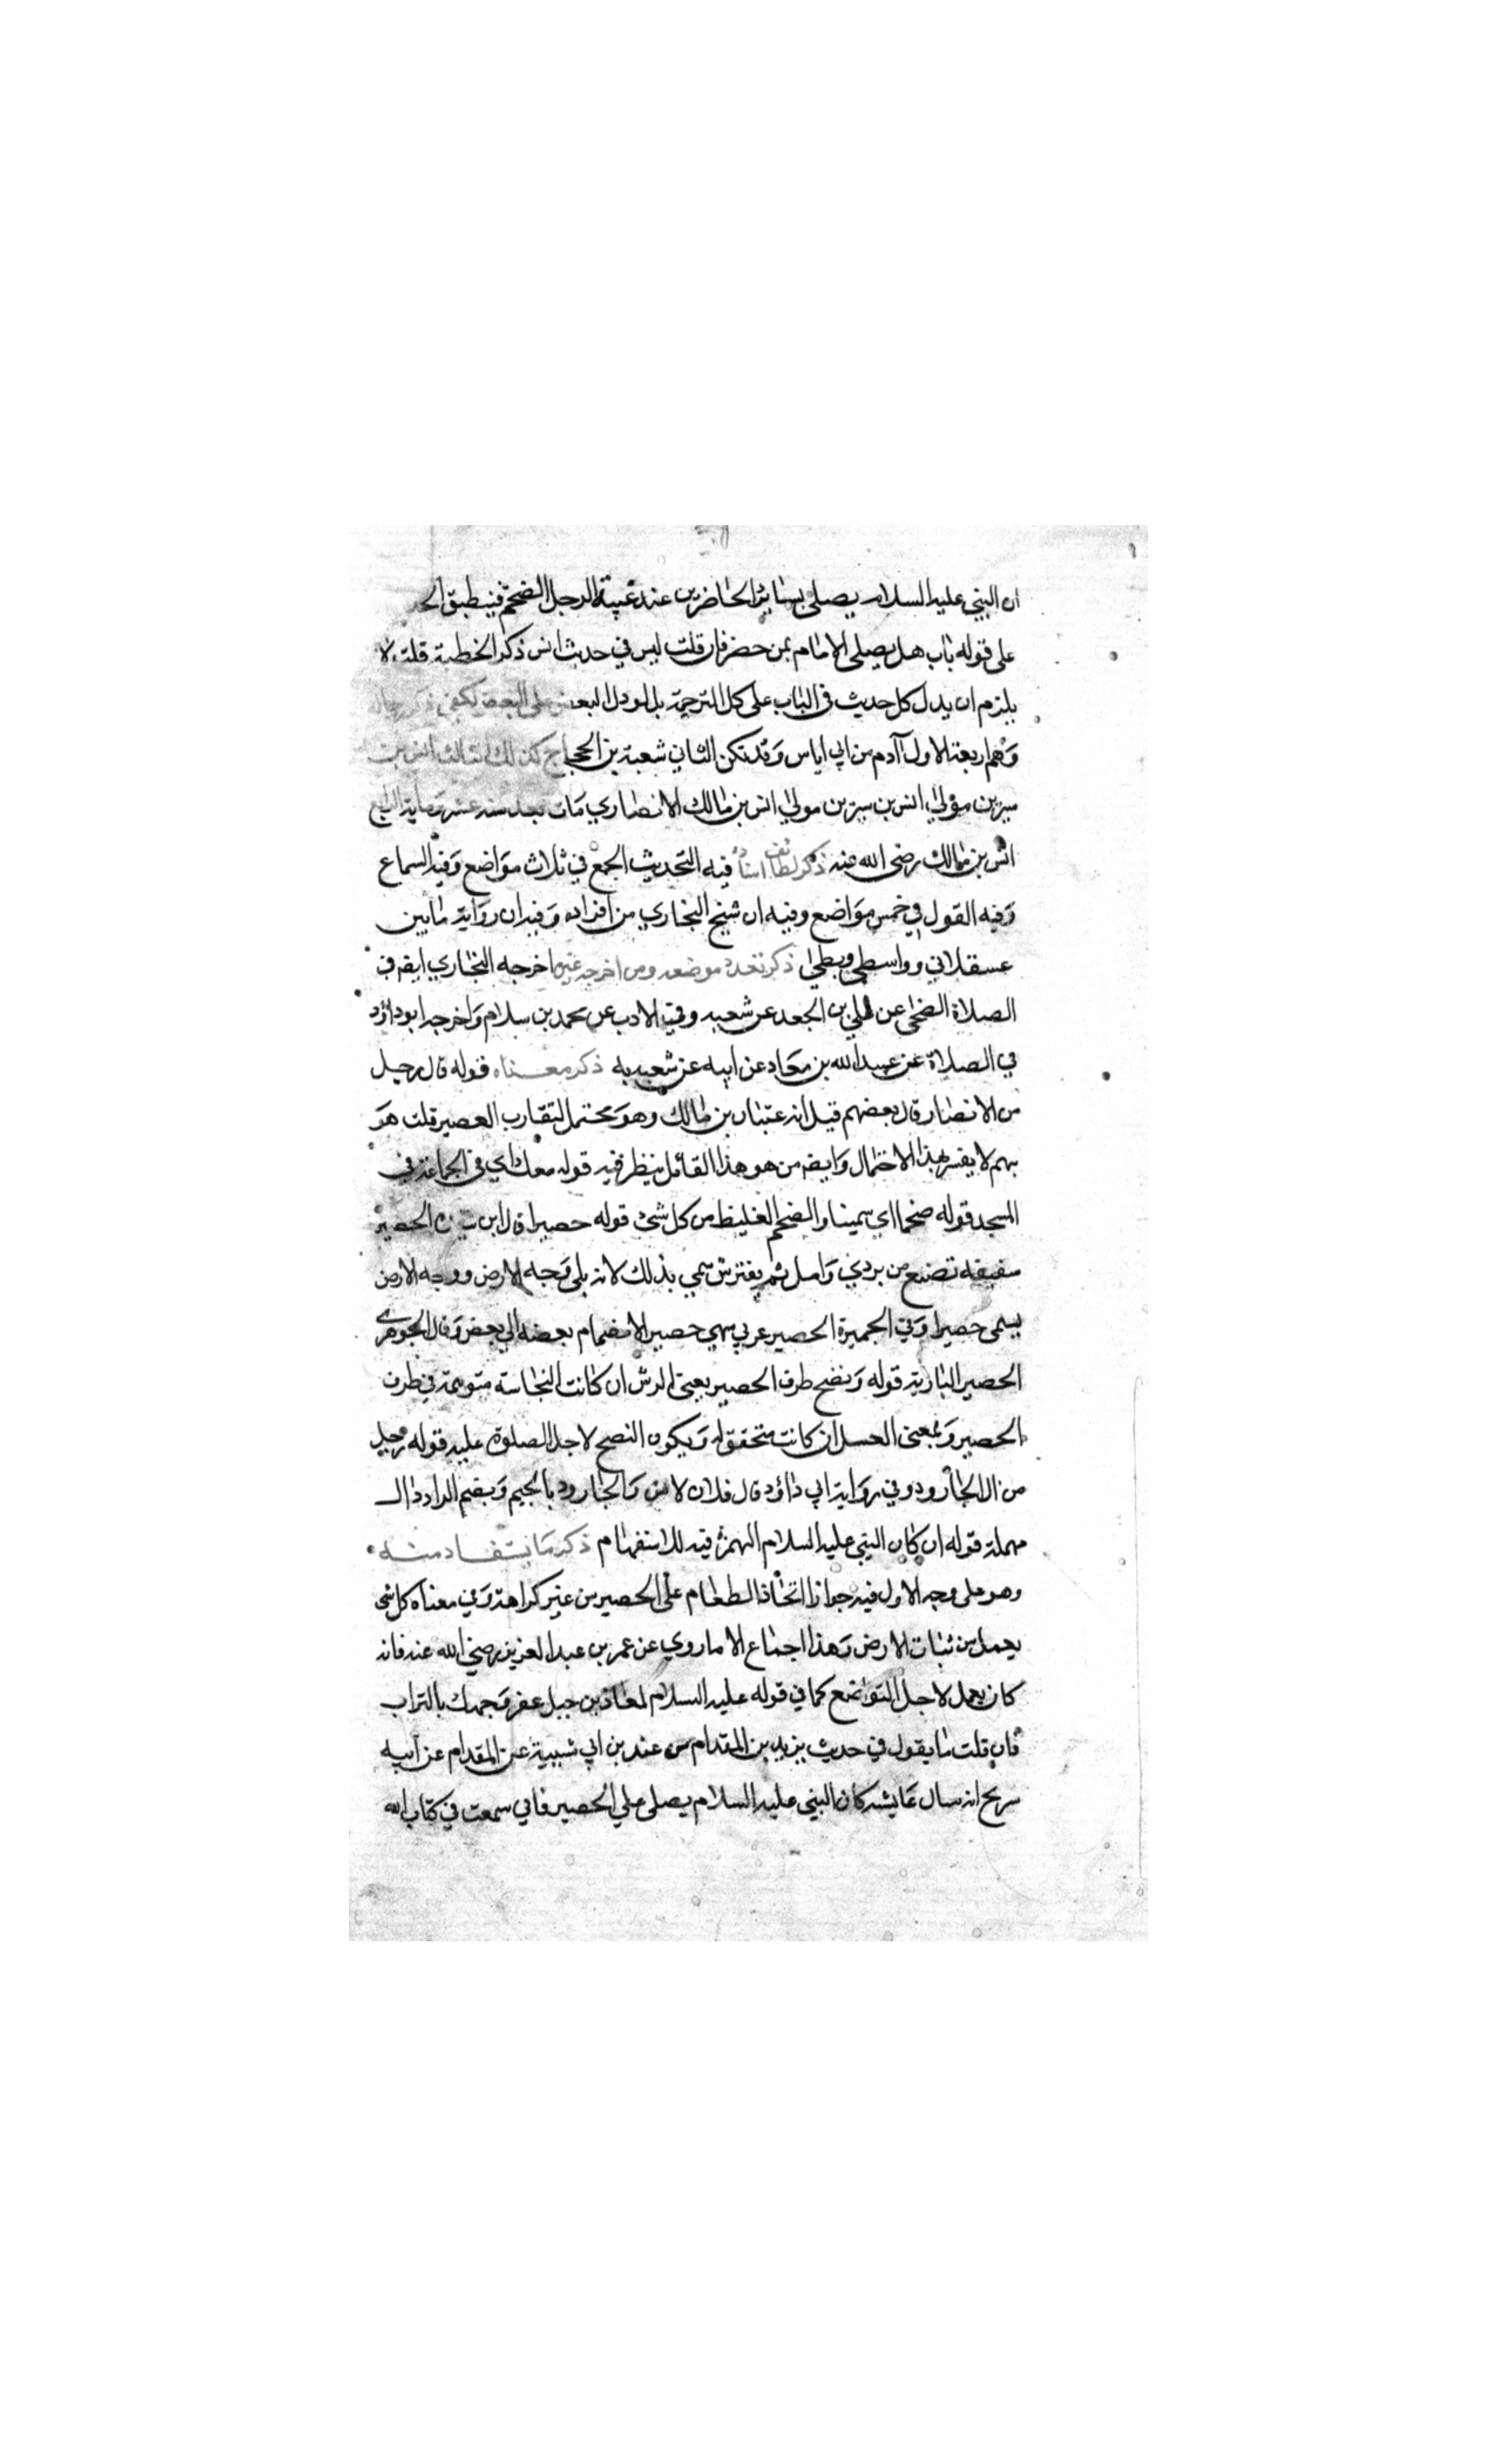 ان النبي عليه السلام يصلي بسائر الحاضرين عند غيبة الرجل الضخم فينطبق الحد
على قوله باب هل يصلي الامام بمن حضر فان قلت ليس في حديث انس ذكر الخطبة قلت لا
يلزم ان يدل كل حديث في الباب على كل الترجمة بل لو دل البعض على البعض لكفى ذكر رجاله
وهم اربعة الاول آدم من ابي اياس وقد تكن الثاني شعبة بن الحجاج كذلك الثالث انس بن
سيرين مولي انس بن سيرين مولي انس بن مالك الانصاري مات بعد سنه عشر ومأية الرابع
انس بن مالك رضى الله عنه ذكر لطائف اسناده فيه التحديث الجمع في ثلاث مواضع وفيه السماع
وفيه القول في خمس مواضع وفيه ان شيخ البخاري من افراده وفيه ان رواية مابين
عسقلاني وواسطي وبطحى ذكر تعدد موضعه ومن اخرجه غيره اخرجه البخاري ايضه في
الصلاة الضحى عن علي بن الجعد عن شعبه وفي الادب عن محمد بن سلام واخرجه ابو داؤد
في الصلاة عن عبيد الله بن معاد عن ابيه عن شعبه به ذكر معناه قوله قال رجل
من الانصار قال بعضهم قيل انه عتبان بن مالك وهو محتمل لتقارب العصير قلت هو
بهم لا يفسر بهذا الاختمال وايضه من هو هذا القائل ينظر فيه قوله معك اي في الجماعة في
المسجد قوله ضخما اي سمينا والضخم الغليظ من كل شئ قوله حصيرا قال ابن الحصير
سفيفه تصنع من بردي وامل ثم يفترش سمي بذلك لانه يلي وجه الارض ووجه الارض
يسمى حصيرا وفي الجميرة الحصير عربي سمي حصير الانضمام بعضه الي بعض وقال الجوهري
الحصير البارية قوله ونضح طرف الحصير بمعنى الرش ان كانت النجاسة متوهمة في طرف
الحصير وبمعنى العسل ان كانت متحققة ويكون النصح لاجل الصلوة عليه قوله رجل
من ال الجارود وفي رواية ابي داؤد قال فلان لانس والجارود بالجيم وبضم الراد دال
مهملة قوله ان كان النبي عليه السلام الهمزة فيه للاستفهام ذكر ما يستفاد منه
وهو على وجه الاول فيه جواز اتخاذ الطعام على الحصير من غير كراهة وفي معناه كل شى
يعمل من نبات الارض وهذا اجماع الا ماروي عن عمر بن عبد العزيز رضي الله عنه فانه
كان يعمل لاجل التواضع كما في قوله عليه السلام لمعاذ بن جبل عفر وجهك بالتراب
فان قلت ما يقول في حديث يزيد بن المقدام من عند بن ابي شيبية عن المقدام عن ابيه
سريح انه سال عايشه كان النبي عليه السلام يصلي علي الحصير فاني سمعت في كتاب الله